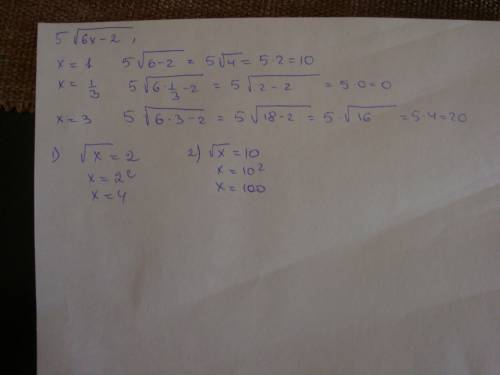 5 √(6x-2) ,
x = 1 5 √(6-2) = 5√4 = 5·2=10
x = 1/3 5 √(6·1/3-2) = 5 √(2-2) = 5·0=0
x=3 5 √(6·3-2) = 5 √(18-2) = 5·√16 =5·4=20
1) √x = 2 2) √x =10
x=2² x=10²
x=4 x=100